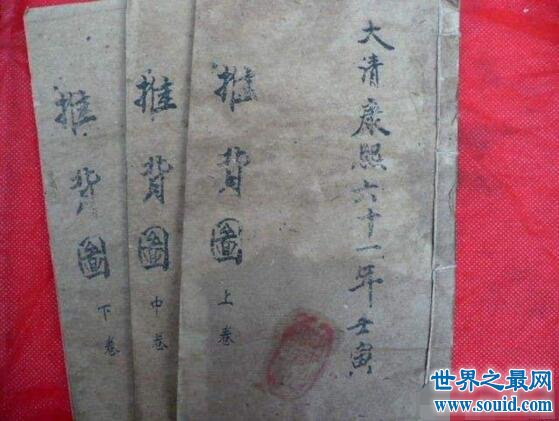 大清康熙六十一年壬寅
推背圖
上卷
推背圖
中卷
推背圖
下卷
世界之最网
www.souid.com